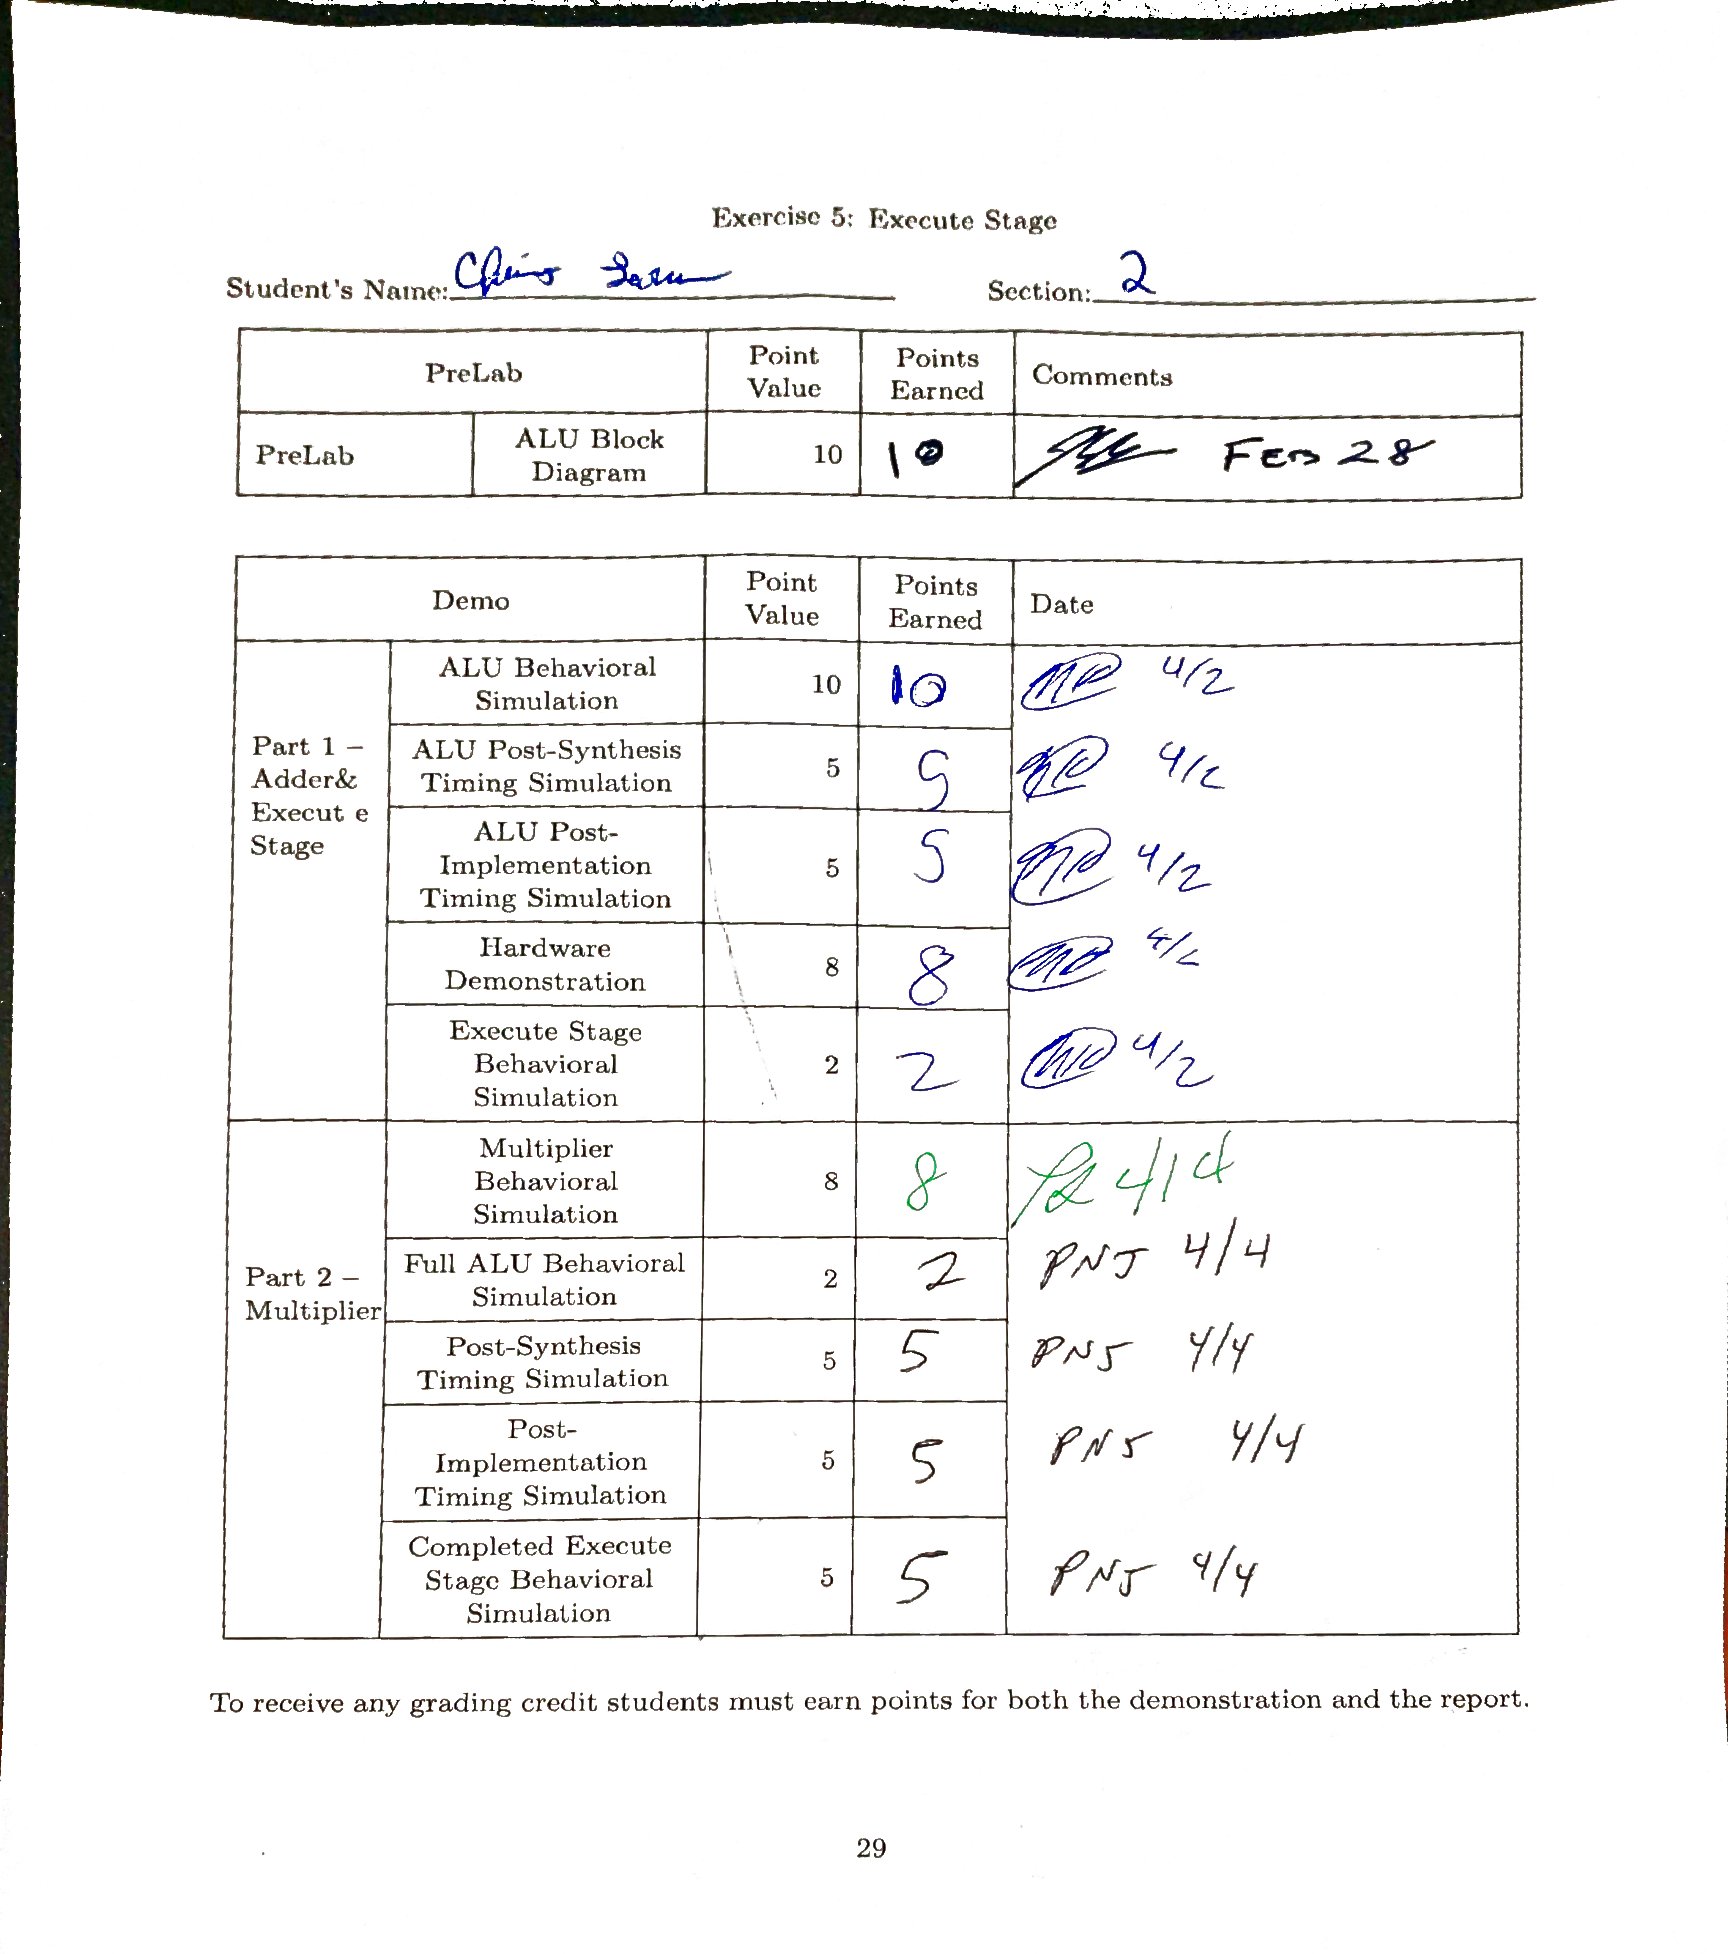 Exercise 5: Execute Stage
Student's Name:
Section: 2
PreLab Point Value Points Earned Comments
PreLab ALU Block Diagram 10 10 FEB 28
Demo Point Value Points Earned Date
Part 1 – Adder& Execut e Stage
ALU Behavioral Simulation 10 10 4/2
ALU Post-Synthesis Timing Simulation 5 5 4/2
ALU Post-Implementation Timing Simulation 5 5 4/2
Hardware Demonstration 8 8 4/2
Execute Stage Behavioral Simulation 2 2 4/2
Part 2 – Multiplier
Multiplier Behavioral Simulation 8 8 4/4
Full ALU Behavioral Simulation 2 2 PNJ 4/4
Post-Synthesis Timing Simulation 5 5 PNJ 4/4
Post-Implementation Timing Simulation 5 5 PNJ 4/4
Completed Execute Stage Behavioral Simulation 5 5 PNJ 4/4
To receive any grading credit students must earn points for both the demonstration and the report.
29